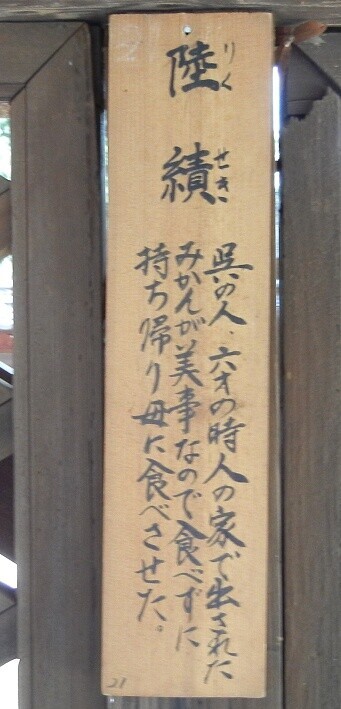 陸績
りくせき
呉の人、六才の時人の家で出された
みかんが美事なので食べずに
持ち帰り母に食べさせた。
21